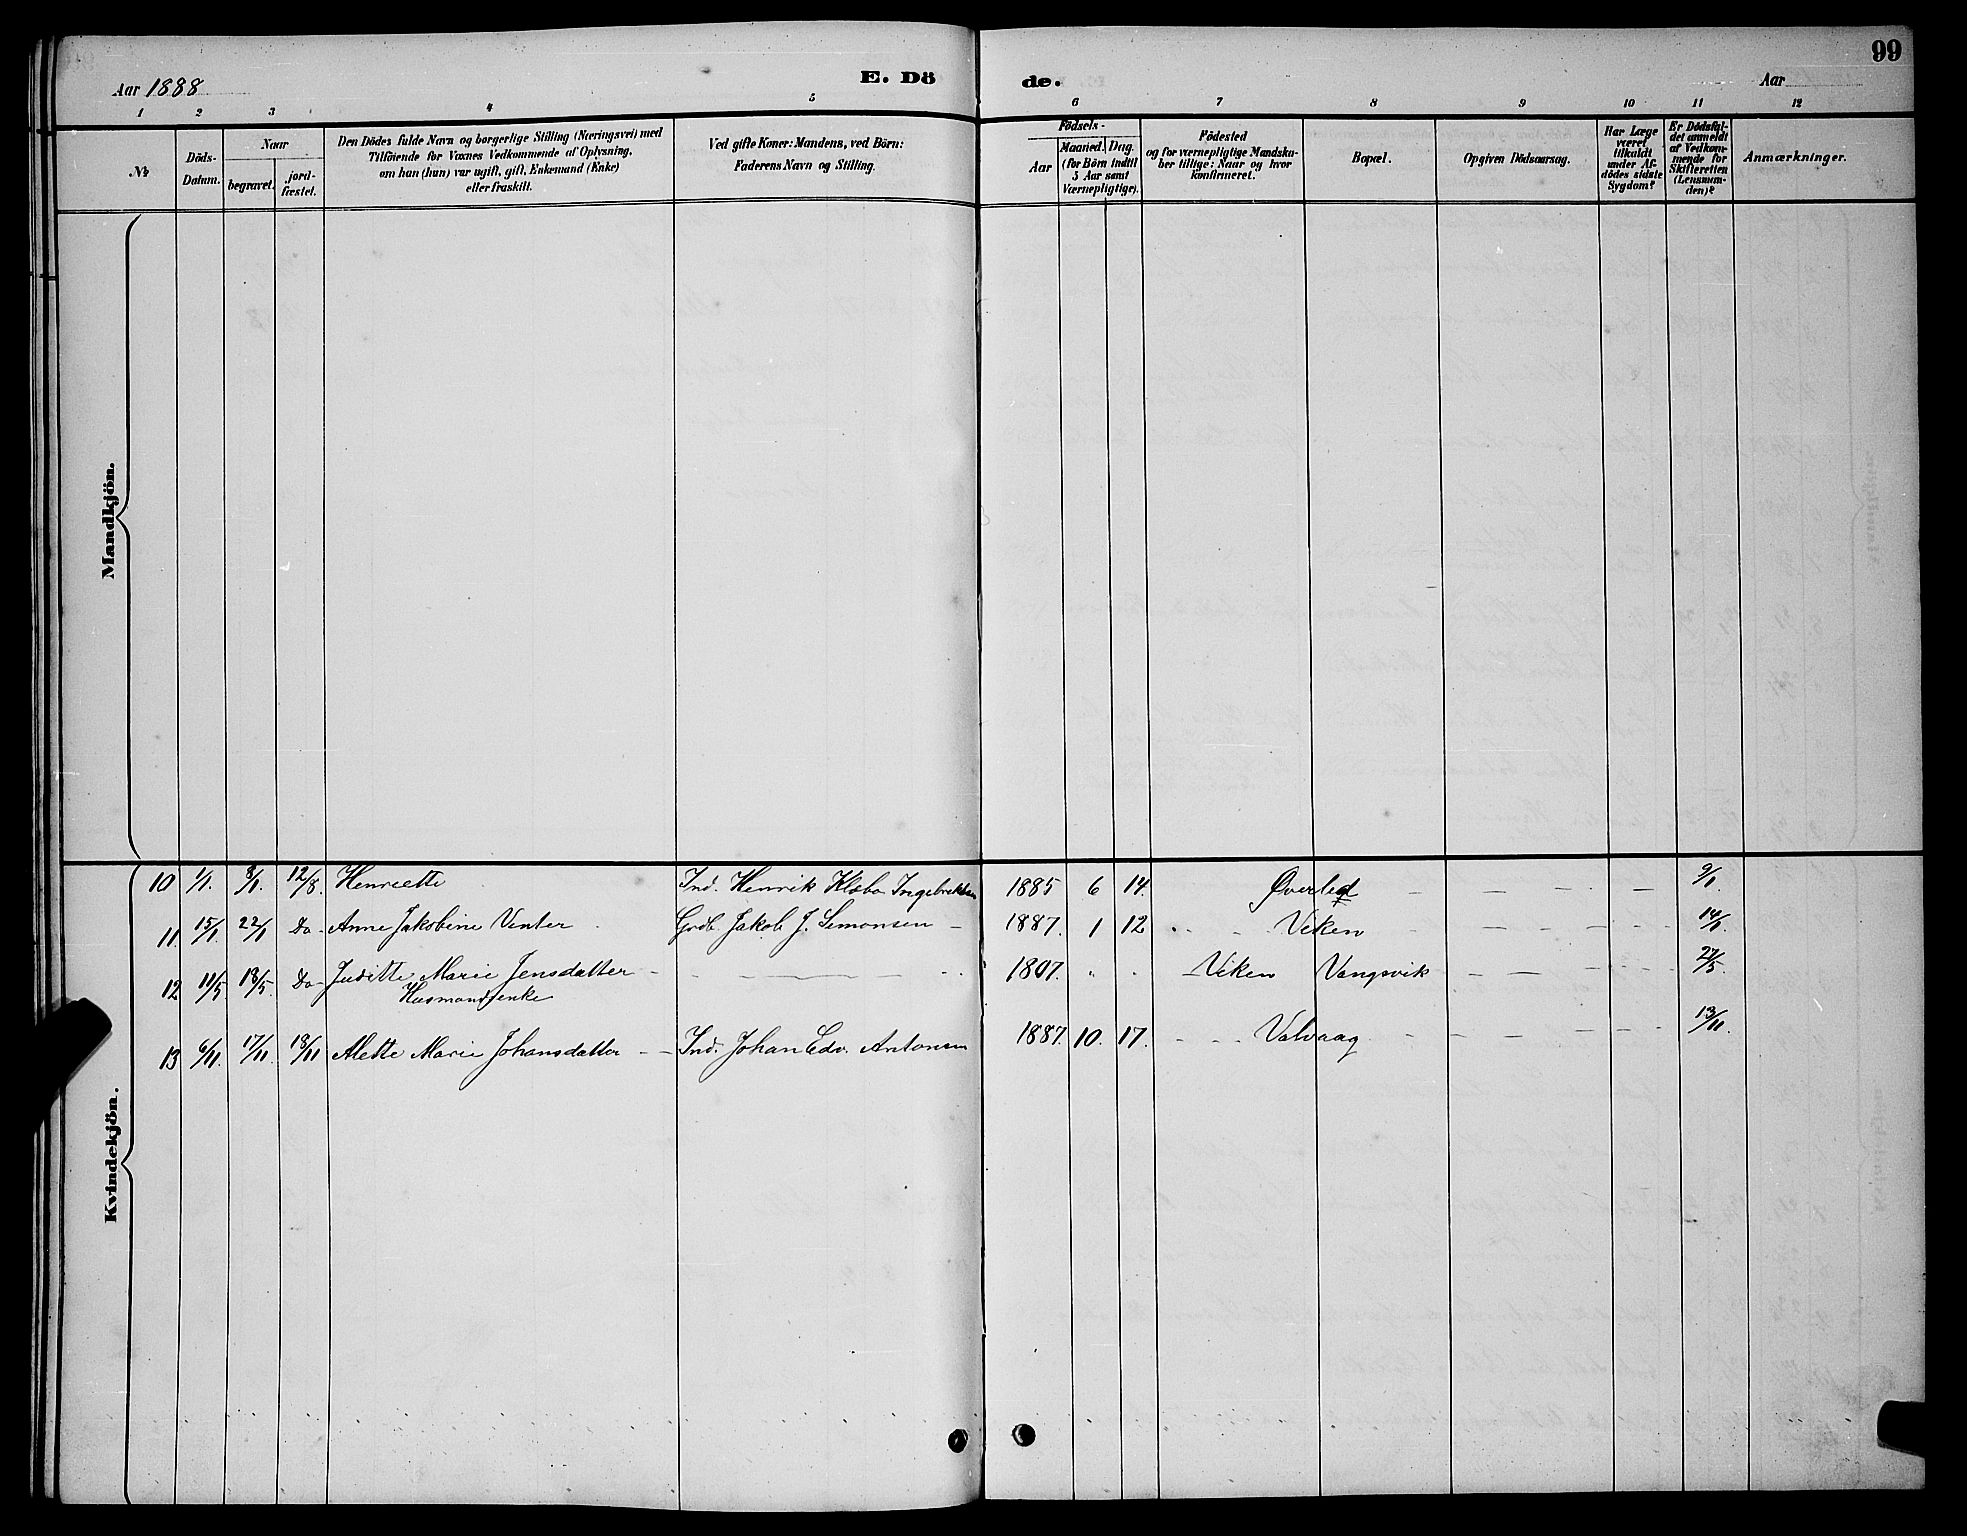 99
Aar 1888
E. Dö
de.
Aar
1 2 3 4 5 6 7 8 9 10 11 12
№
Döds-
Datum.
Naar
begravet.
jord-
fæstet.
Den Dödes fulde Navn og borgerlige Stilling (Næringsvei) med
Tilföiende for Voxnes Vedkommende af Oplysning,
om han (hun) var ugift, gift, Enkemand (Enke)
eller fraskilt.
Ved gifte Koner: Mandens, ved Börn:
Faderens Navn og Stilling.
Födsels-
Aar
Maaned.
Dag.
(for Börn indtil
5 Aar samt
Værnepligtige).
Födested
og for værnepligtige Mandska-
ber tillige: Naar og hvor
konfirmeret.
Bopæl.
Opgiven Dödsaarsag.
Har Læge
været
tilkaldt
under Af-
dödes sidste
Sygdom?
Er Dödsfal-
det anmeldt
af Vedkom-
mende for
Skifteretten
(Lensman-
den)?
Anmærkninger.
Mandkjön.
Kvindekjön.
10 1/1. 8/1. 12/8. Henriette Ind. Henrik Klæbo Ingebrektsen 1885 6 14. Øverled - - - - 9/1.
11 15/1. 22/1 Do- Anne Jakobine Venter Grdb. Jakob J. Simonsen - 1887. 1 12 - - Viken - - - - 14/1.
12 11/5 18/5. Do- Juditte Marie Jensdatter - - - - 1807. " " - Viken Vangsvik - - - - 27/5.
Husmandsenke
13 6/11. 17/11. 18/11 Mette Marie Johansdatter - - Ind. Johan Edv. Antonsen 1887. 10. 17. - - - Valvaag - - - - 13/11.